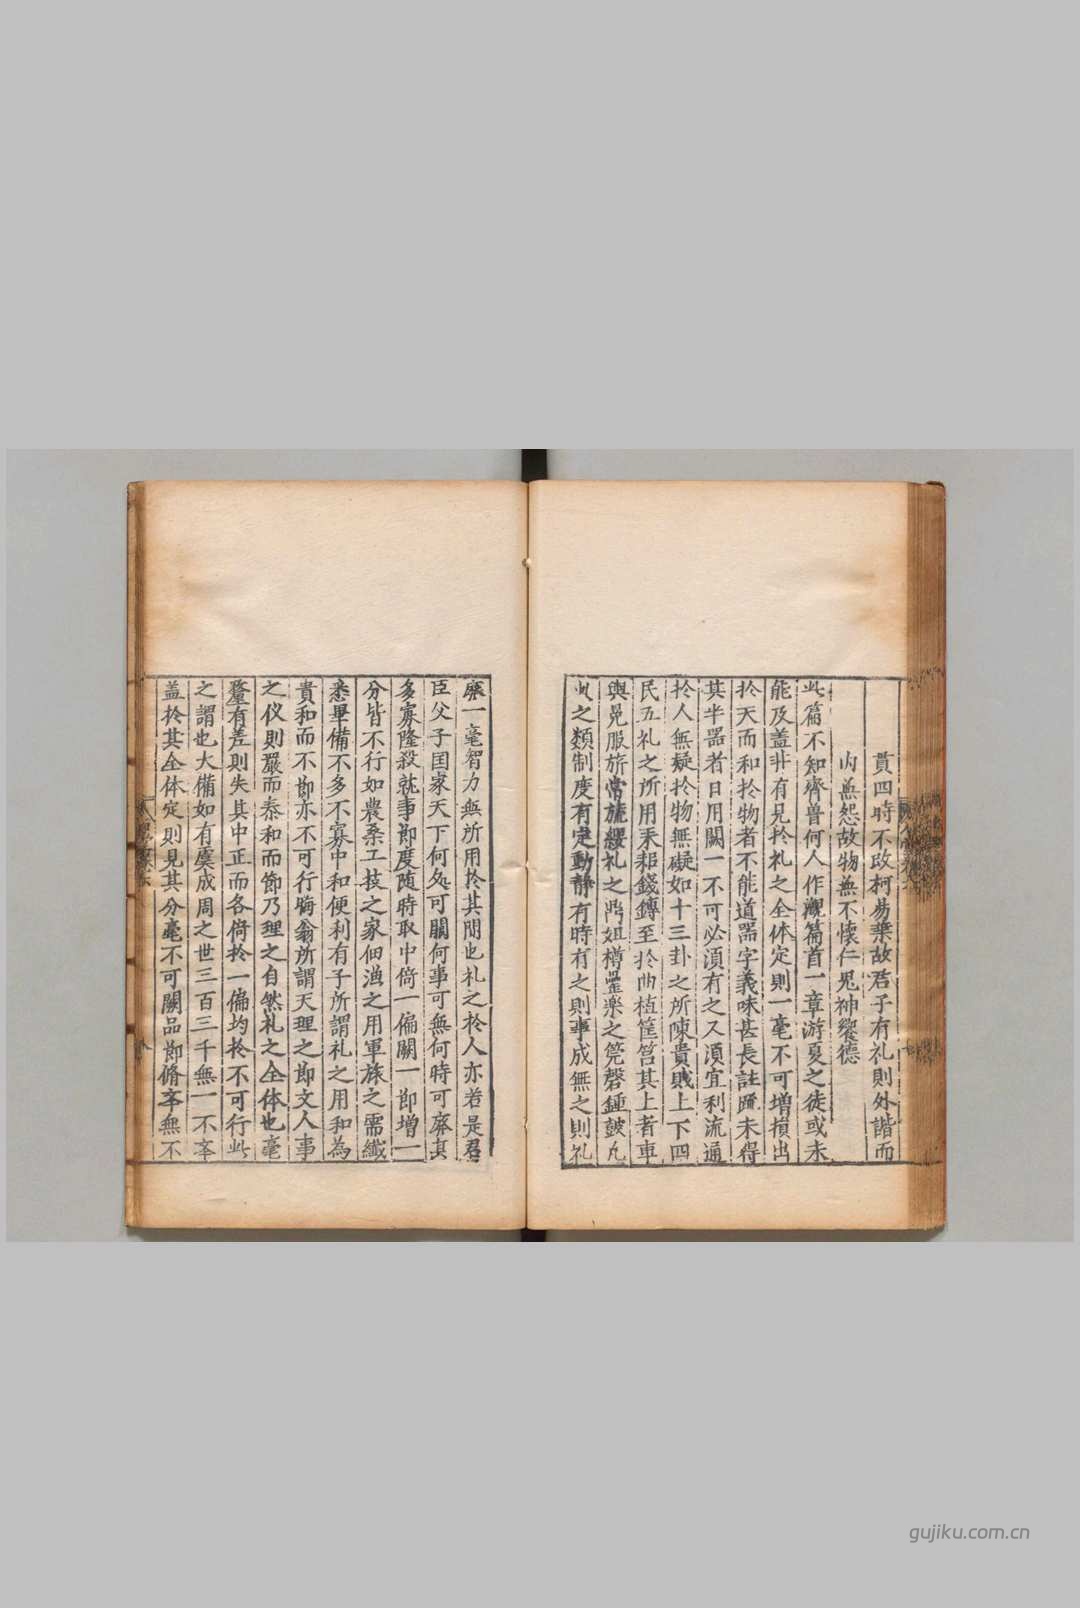 貫四時不改柯易葉故君子有礼則外諧而
内無怨故物無不懷仁鬼神饗德
此篇不知齊魯何人作觀篇首一章游夏之徒或未
能及盖井有見扵礼之全体定則一毫不可增損出
扵天而和扵物者不能道器字義味甚長註䟽未得
其半器者日用闕一不可必須有之又湏宜利流通
扵人無疑扵物無礙如十三卦之所陳貴賎上下四
民五礼之所用耒耜錢鎛至扵曲植筐筥其上者車
輿冕服旂常旒纓礼之鼎俎樽罍楽之筦磬鍾皷凡
此之類制度有定動静有時有之則事成無之則礼
廢一毫智力無所用扵其間也礼之扵人亦若是君
臣父子国家天下何処可闕何事可無何時可廢其
多寡隆殺就事即度随時取中倚一偏闕一節增一
分皆不行如農桑工技之家佃漁之用軍旅之需纎
悉畢備不多不寡中和便利有子所謂礼之用和為
貴和而不節亦不可行晦翁所謂天理之節文人事
之仪則嚴而泰和而節乃理之自然礼之全体也毫
釐有差則失其中正而各倚扵一偏均扵不可行此
之謂也大備如有虞成周之世三百三千無一不夲
盖扵其全体定則見其分毫不可闕品節脩夲無不
gujiku.com.cn